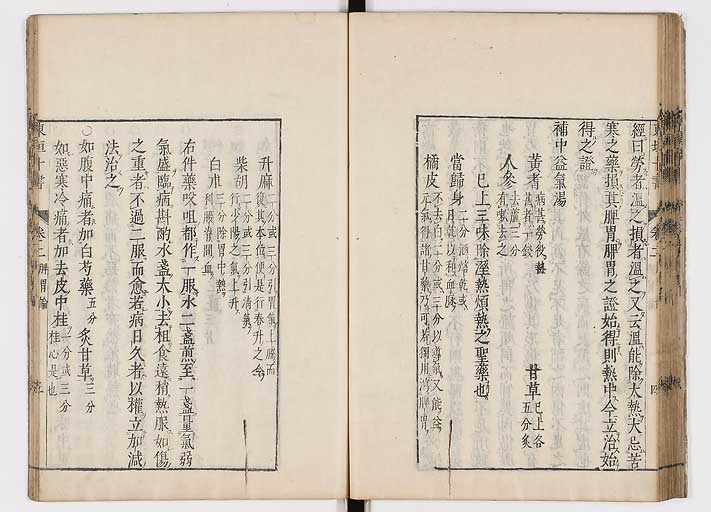 經曰勞者溫之損者溫之又云溫能除大熱大忌苦
寒之藥損其脾胃脾胃之證始得則熱中今立治始
得之證
補中益氣湯
黃耆 病甚勞役熱甚者一錢 甘草 已上各五分炙
人參 去蘆三分有嗽去之
已上三味除溼熱煩熱之聖藥也
當歸身 二分酒焙乾或日乾以和血脉
橘皮 不去白二分或三分以導氣又能益元氣得諸甘藥乃可若獨用瀉脾胃
升麻 二分或三分引胃氣上騰而復其本位便是行春升之令
柴胡 二分或三分引清氣行少陽之氣上升
白朮 三分除胃中熱利腰臍間血
右件藥㕮咀都作一服水二盞煎至一盞量氣弱
氣盛臨病斟酌水盞大小去柤食遠稍熱服如傷
之重者不過二服而愈若病日久者以權立加減
法治之
○如腹中痛者加白芍藥 五分 炙甘草 三分
如惡寒冷痛者加去皮中桂 一分或三分桂心是也
東垣十書
卷二
脾胃論